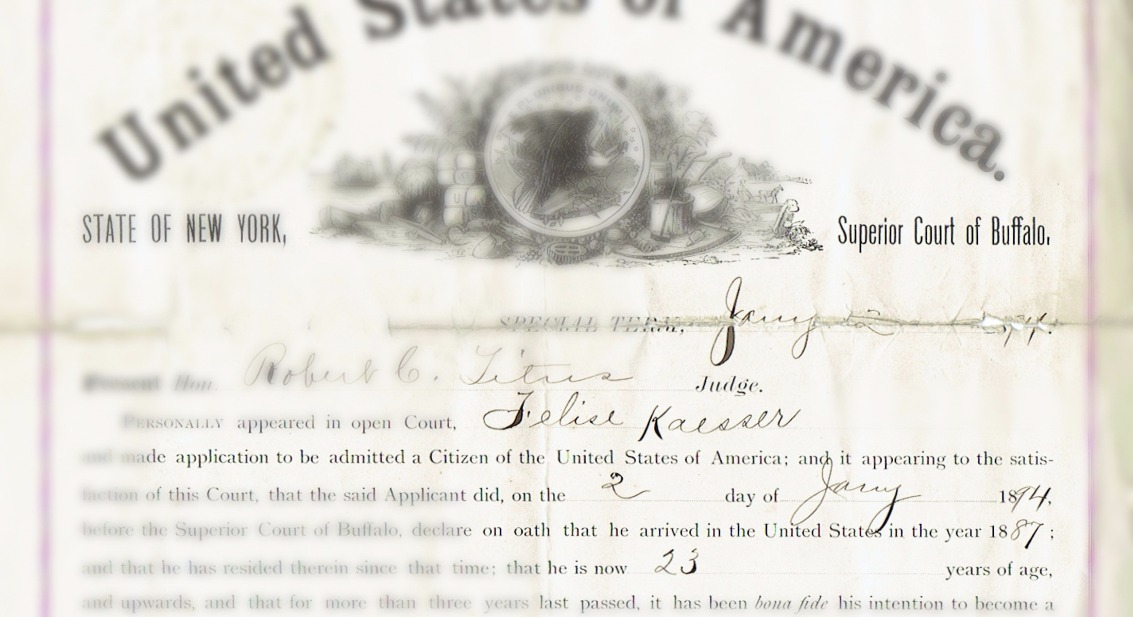 United States of America.
E PLURIBUS UNUM
STATE OF NEW YORK,
Superior Court of Buffalo.
SPECIAL TERM, Jany 2 94.
Present Hon. Robert C. Titus Judge.
PERSONALLY appeared in open Court, Felise Kaesser
and made application to be admitted a Citizen of the United States of America; and it appearing to the satis-
faction of this Court, that the said Applicant did, on the 2 day of Jany 1894,
before the Superior Court of Buffalo, declare on oath that he arrived in the United States in the year 1887;
and that he has resided therein since that time; that he is now 23 years of age,
and upwards, and that for more than three years last passed, it has been bona fide his intention to become a